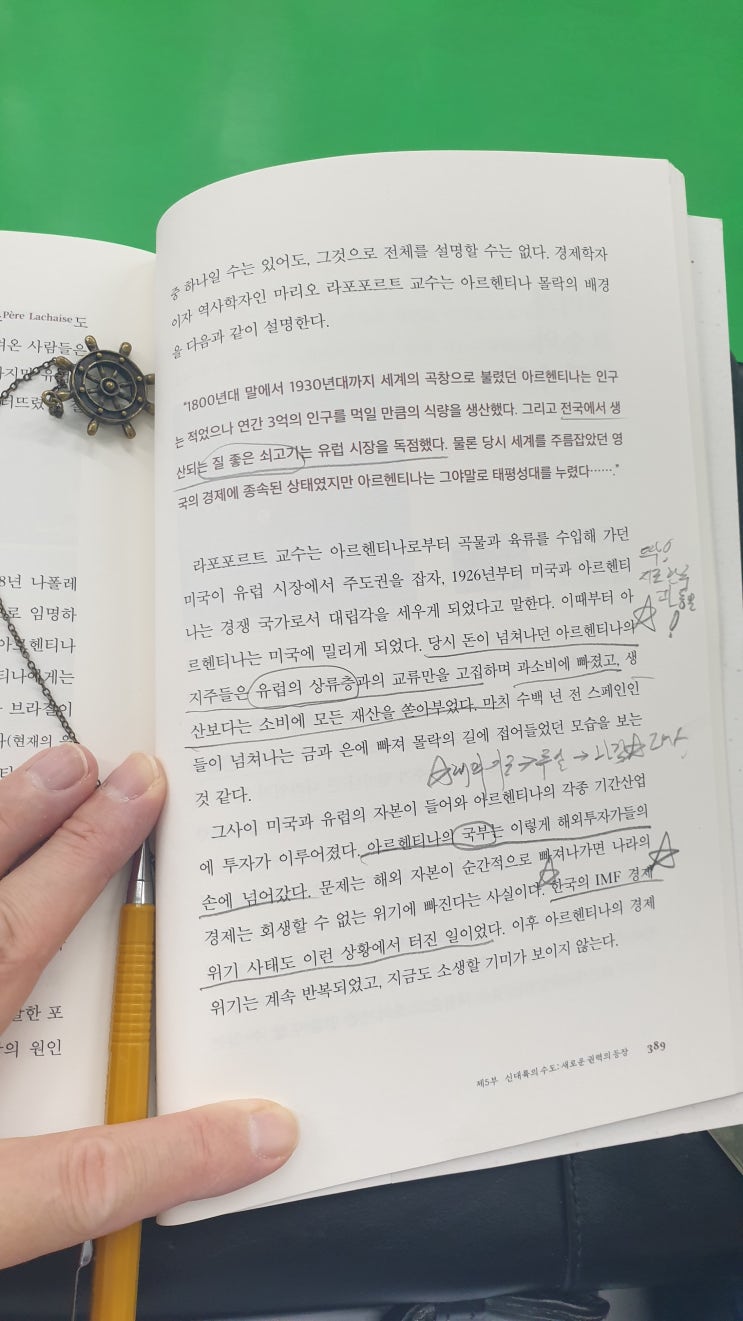 Père Lachaise도
온 사람들은
8년 나폴레
로 임명하
아르헨티나
티나에게는
브라질이
(현재의
발한 포
의 원인
중 하나일 수는 있어도, 그것으로 전체를 설명할 수는 없다. 경제학자
이자 역사학자인 마리오 라포포르트 교수는 아르헨티나 몰락의 배경
을 다음과 같이 설명한다.
"1800년대 말에서 1930년대까지 세계의 곡창으로 불렸던 아르헨티나는 인구
는 적었으나 연간 3억의 인구를 먹일 만큼의 식량을 생산했다. 그리고 전국에서 생
산되는 질 좋은 쇠고기는 유럽 시장을 독점했다. 물론 당시 세계를 주름잡았던 영
국의 경제에 종속된 상태였지만 아르헨티나는 그야말로 태평성대를 누렸다……."
라포포르트 교수는 아르헨티나로부터 곡물과 육류를 수입해 가던
미국이 유럽 시장에서 주도권을 잡자, 1926년부터 미국과 아르헨티
나는 경쟁 국가로서 대립각을 세우게 되었다고 말한다. 이때부터 아
르헨티나는 미국에 밀리게 되었다. 당시 돈이 넘쳐나던 아르헨티나의
지주들은 유럽의 상류층과의 교류만을 고집하며 과소비에 빠졌고, 생
산보다는 소비에 모든 재산을 쏟아부었다. 마치 수백 년 전 스페인인
들이 넘쳐나는 금과 은에 빠져 몰락의 길에 접어들었던 모습을 보는
것 같다.
그사이 미국과 유럽의 자본이 들어와 아르헨티나의 각종 기간산업
에 투자가 이루어졌다. 아르헨티나의 국부는 이렇게 해외투자가들의
손에 넘어갔다. 문제는 해외 자본이 순간적으로 빠져나가면 나라의
경제는 회생할 수 없는 위기에 빠진다는 사실이다. 한국의 IMF 경제
위기 사태도 이런 상황에서 터진 일이었다. 이후 아르헨티나의 경제
위기는 계속 반복되었고, 지금도 소생할 기미가 보이지 않는다.
제5부 신대륙의 수도: 새로운 권력의 등장 389